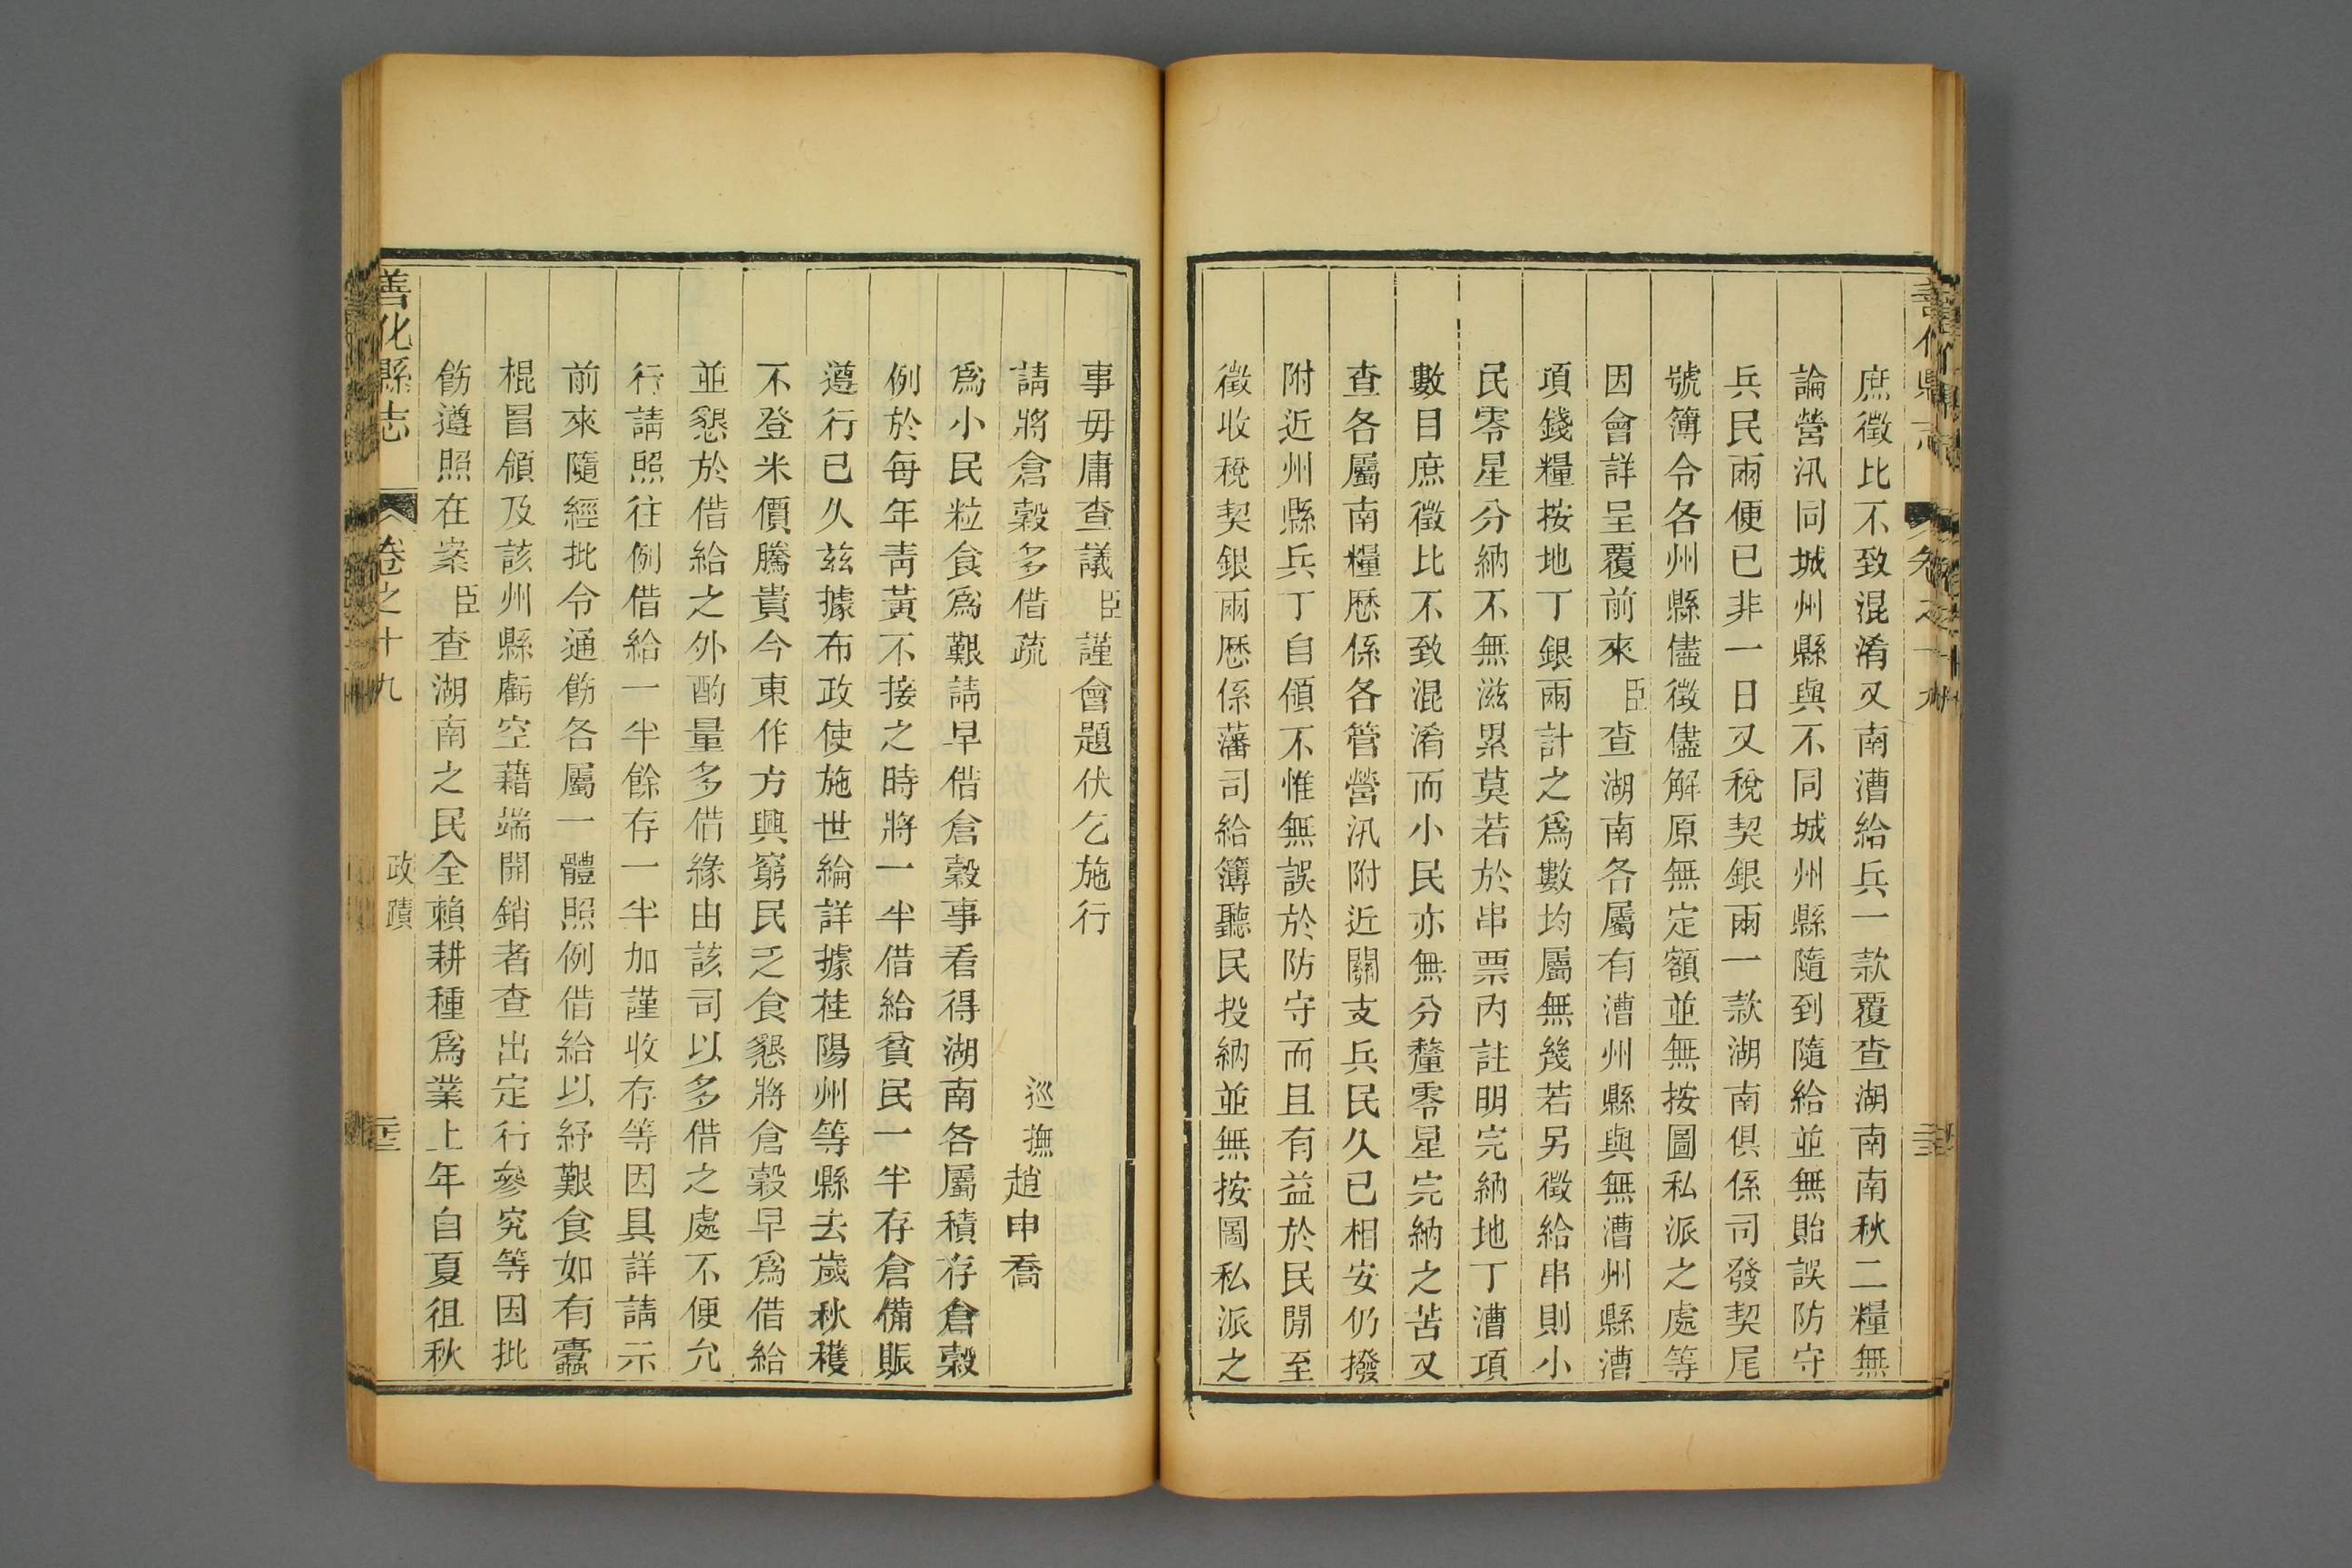 庶徵比不致混淆又南漕給兵一款覆查湖南南秋二糧無
論營汛同城州縣與不同城州縣隨到隨給並無貽誤防守
兵民兩便已非一日又稅契銀兩一款湖南俱係司發契尾
號簿令各州縣儘徵儘解原無定額並無按圖私派之處等
因會詳呈覆前來臣查湖南各屬有漕州縣與無漕州縣漕
項錢糧按地丁銀兩計之爲數均屬無幾若另徵給串則小
民零星分納不無滋累莫若於串票內註明完納地丁漕項
數目庶徵比不致混淆而小民亦無分釐零星完納之苦又
查各屬南糧歷係各管營汛附近關支兵民久已相安仍撥
附近州縣兵丁自領不惟無誤於防守而且有益於民閒至
徵收稅契銀兩歷係藩司給簿聽民投納並無按圖私派之
事毋庸查議臣謹會題伏乞施行
請將倉穀多借疏 巡撫趙申喬
爲小民粒食爲艱請早借倉穀事看得湖南各屬積存倉穀
例於每年靑黃不接之時將一半借給貧民一半存倉備賑
遵行已久玆據布政使施世綸詳據桂陽州等縣去歲秋穫
不登米價騰貴今東作方興窮民乏食懇將倉穀早爲借給
並懇於借給之外酌量多借緣由該司以多借之處不便允
行請照往例借給一半餘存一半加謹收存等因具詳請示
前來隨經批令通飭各屬一體照例借給以紓艱食如有蠹
棍冒領及該州縣虧空藉端開銷者查出定行參究等因批
飭遵照在案臣查湖南之民全賴耕種爲業上年自夏徂秋
善化縣志 卷之十九 政蹟 二十三